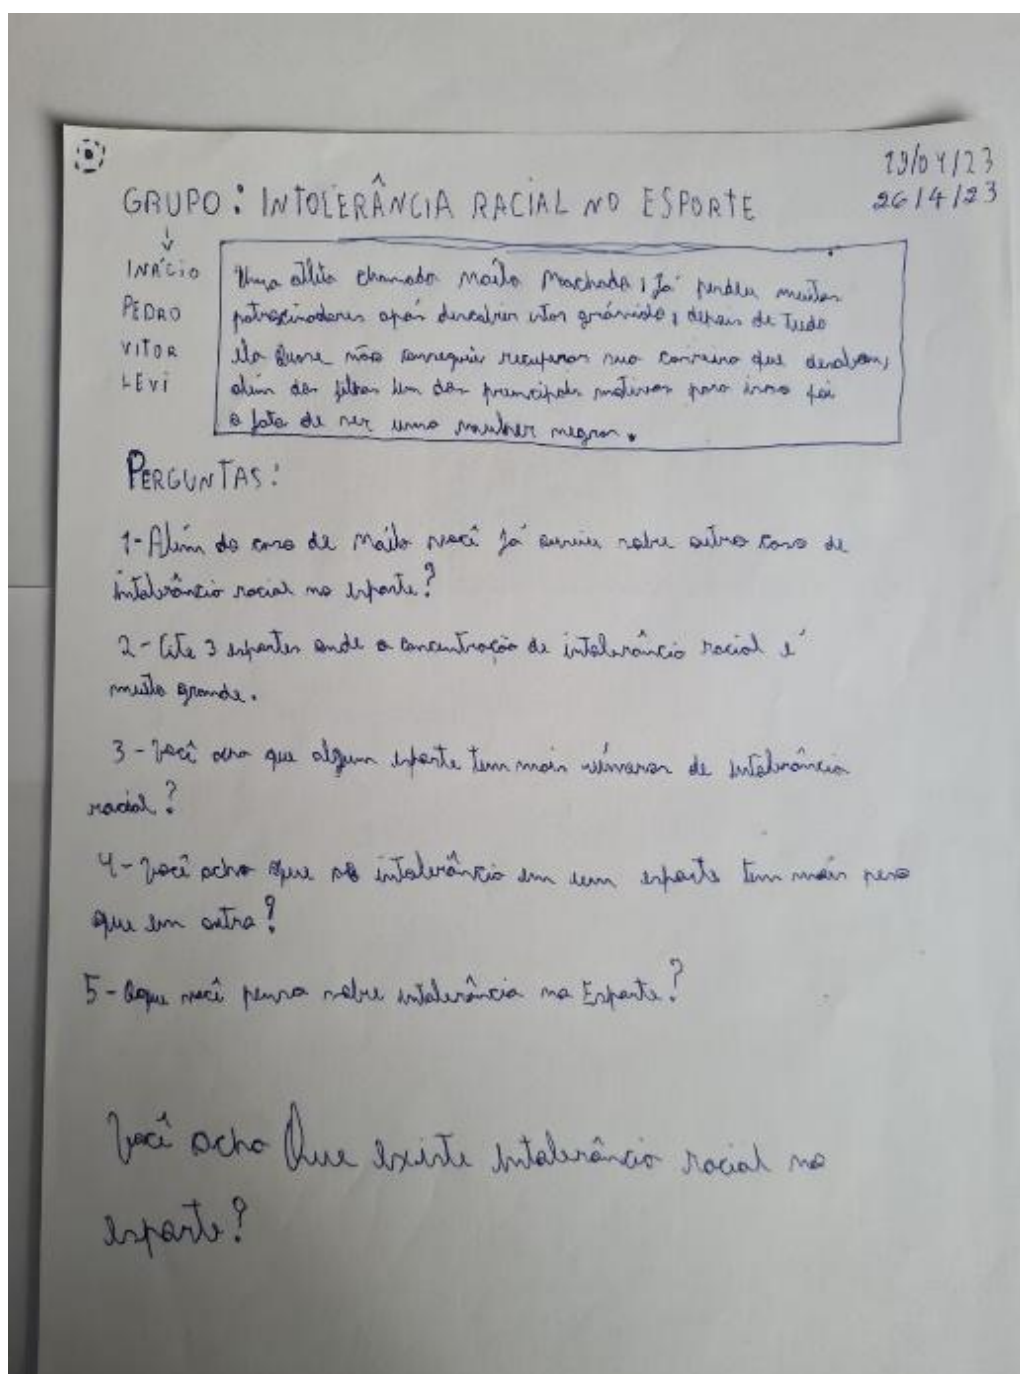 19/04/23
26/4/23
GRUPO: INTOLERÂNCIA RACIAL NO ESPORTE
INÁCIO
PEDRO
VITOR
LEVI
Uma atleta chamada Maíla Machado, Já perdeu muitos
patrocinadores após descobrir estar grávida, depois de Tudo
ela Quase não conseguiu recuperar sua carreira que desabou,
além dos filhos um dos principais motivos para isso foi
o fato de ser uma mulher negra.
PERGUNTAS:
1-Além do caso de Maíla você Já ouviu sobre outro caso de
intolerância racial no esporte?
2-Cite 3 esportes onde a concentração de intolerância racial é
muito grande.
3-Você acha que algum esporte tem mais números de intolerância
racial?
4-Você acha que a intolerância em um esporte tem mais peso
que em outro?
5-Oque você pensa sobre intolerância no Esporte?
Você acha Que existe intolerância racial no
esporte?